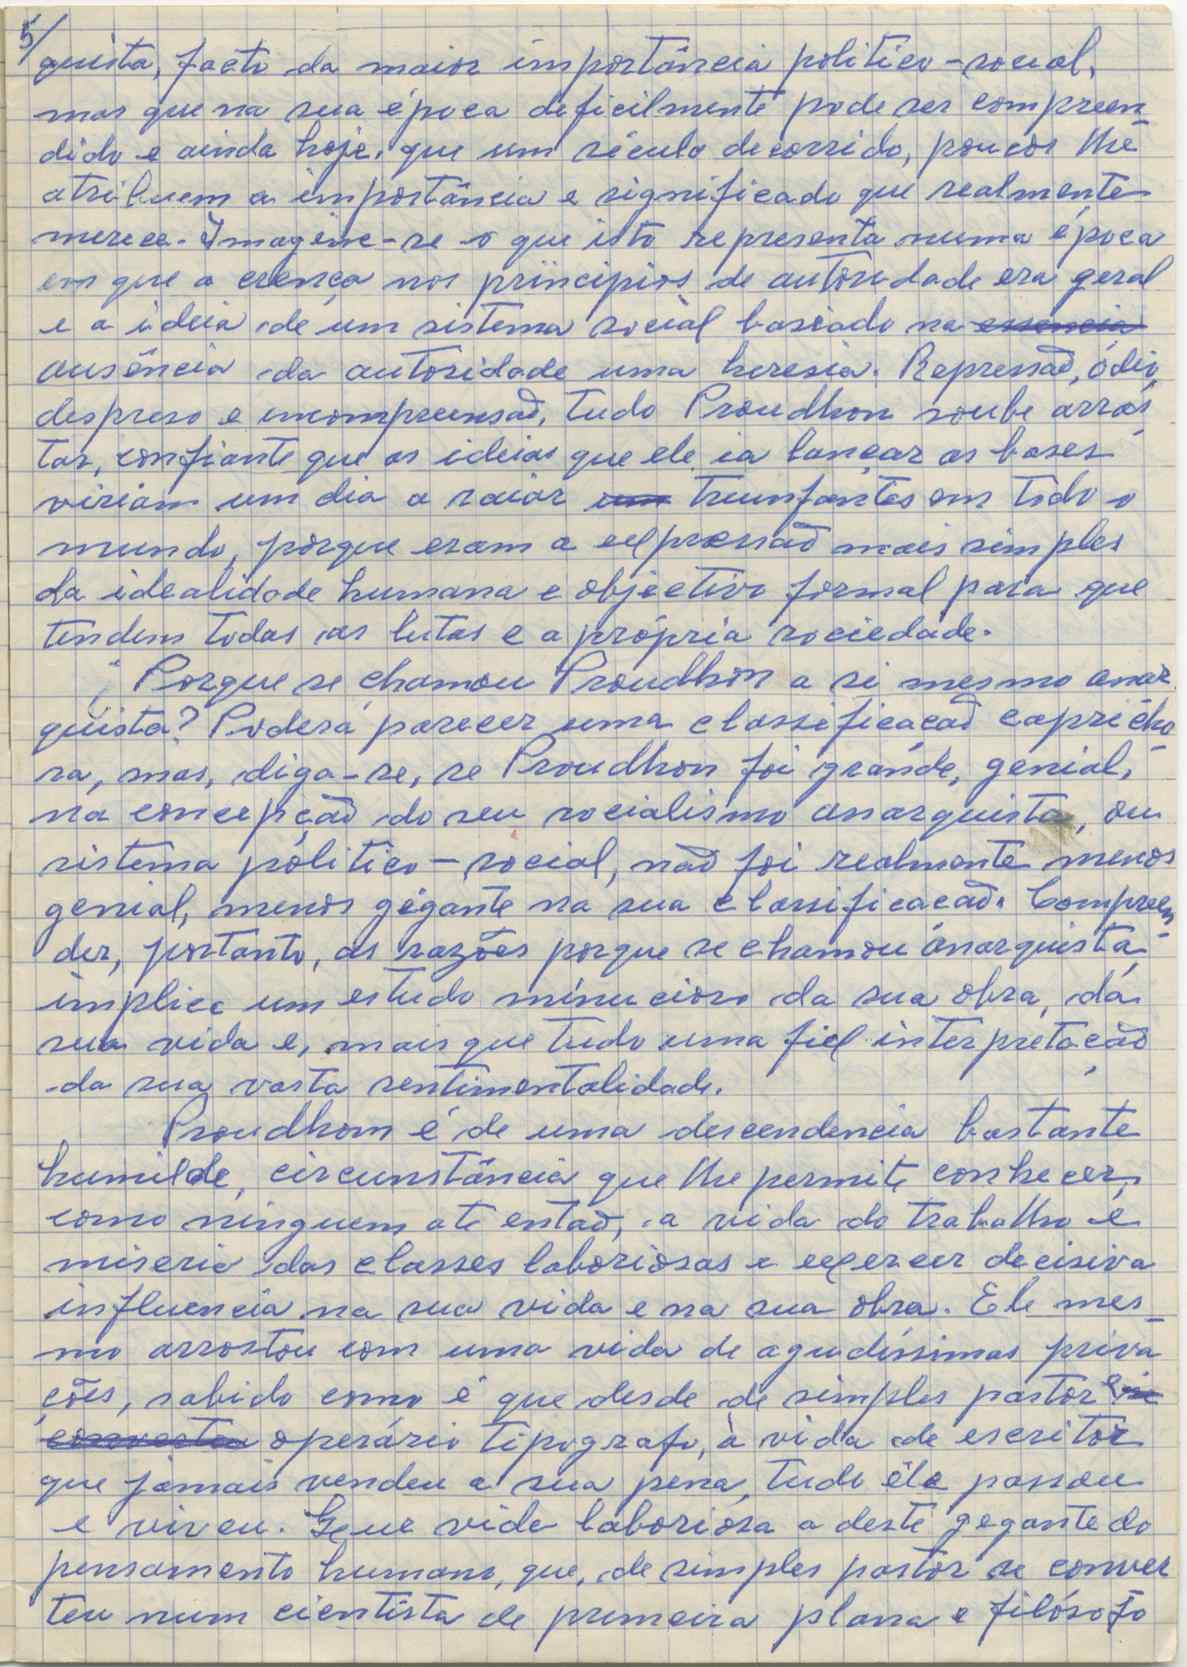 5/
quista, facto da maior importância politico-social,
mas que na sua época deficilmente pode ser compreen
dido e ainda hoje, que um século decorrido, poucos lhe
atribuem a importância e significado que realmente
merece. Imagine-se o que isto representa numa época
em que a crença nos princípios de autoridade era geral
e a ideia de um sistema social baseado na essencia
ausência da autoridade uma heresia. Repressaõ, ódio,
despreso e incompreensaõ, tudo Proudhon soube arros
tar, confiante que as ideias que ele ia lançar as bases
viriam um dia a raiar um triunfantes em todo o
mundo, porque eram a expressaõ mais simples
da idealidade humana e objectivo formal para que
tendem todas as lutas e a própria sociedade.
Porque se chamou Proudhon a si mesmo anar
quista? Poderá parecer uma classificaçaõ capricho
sa, mas, diga-se, se Proudhon foi grande, genial,
na concepçaõ do seu socialismo anarquista, ou
sistema politico-social, naõ foi realmente menos
genial, menos gigante na sua classificaçaõ. Compreen
der, portanto, as razões porque se chamou anarquista
implica um estudo minucioso da sua obra, da
sua vida e, mais que tudo uma fiel interpretaçaõ
da sua vasta sentimentalidade.
Proudhom é de uma descendencia bastante
humilde, circunstância que lhe permite conhecer,
como ninguem ate entaõ, a vida do trabalho e
miseria das classes laboriosas e exercer decisiva
influencia na sua vida e na sua obra. Ele mes
mo arrostou com uma vida de agudíssimas priva
ções, sabido como é que desde de simples pastor e se
converteu operário tipografo, à vida de escritor
que jamais vendeu a sua pena, tudo êle passou
e viveu. Que vida laboriosa a deste gegante do
pensamento humano, que, de simples pastor se conver
teu num cientista de primeira plana e filósofo